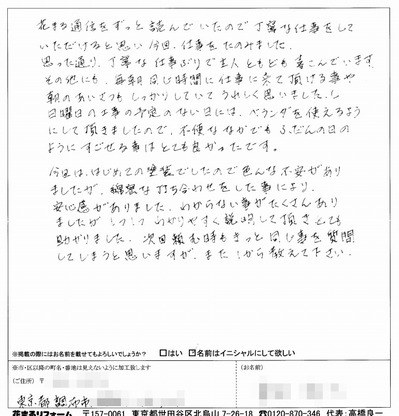 花まる通信をずっと読んでいたので丁寧な仕事をして
いただけると思い今回、仕事をたのみました。
思った通り、丁寧な仕事ぶりで主人ともども喜こんでいます。
その他にも、毎朝同じ時間に仕事に来て頂ける事や
朝のあいさつもしっかりしていてうれしく思いました。
日曜日の工事の予定のない日には、ベランダを使えるよう
にして頂きましたので、不便ななかでもふだんの日の
ようにすごせる事はとても良かったです。
今回は、はじめての塗装でしたので色んな不安があり
ましたが、綿密な打ち合わせをした事により、
安心感がありました。わからない事がたくさんあり
ましたが1つ1つわかりやすく説明して頂きとても
助かりました。次回頼む時もきっと同じ事を質問
してしまうと思いますが、また1から教えて下さい。
※掲載の際にはお名前を載せてもよろしいでしょうか？ □はい ☑名前はイニシャルにして欲しい
※市・区以降の町名・番地は見えないように加工致します
（お名前）
（ご住所）〒
東京都調布市
花まるリフォーム 〒157-0061 東京都世田谷区北烏山7-26-18 ☎0120-870-346 代表：高橋良一